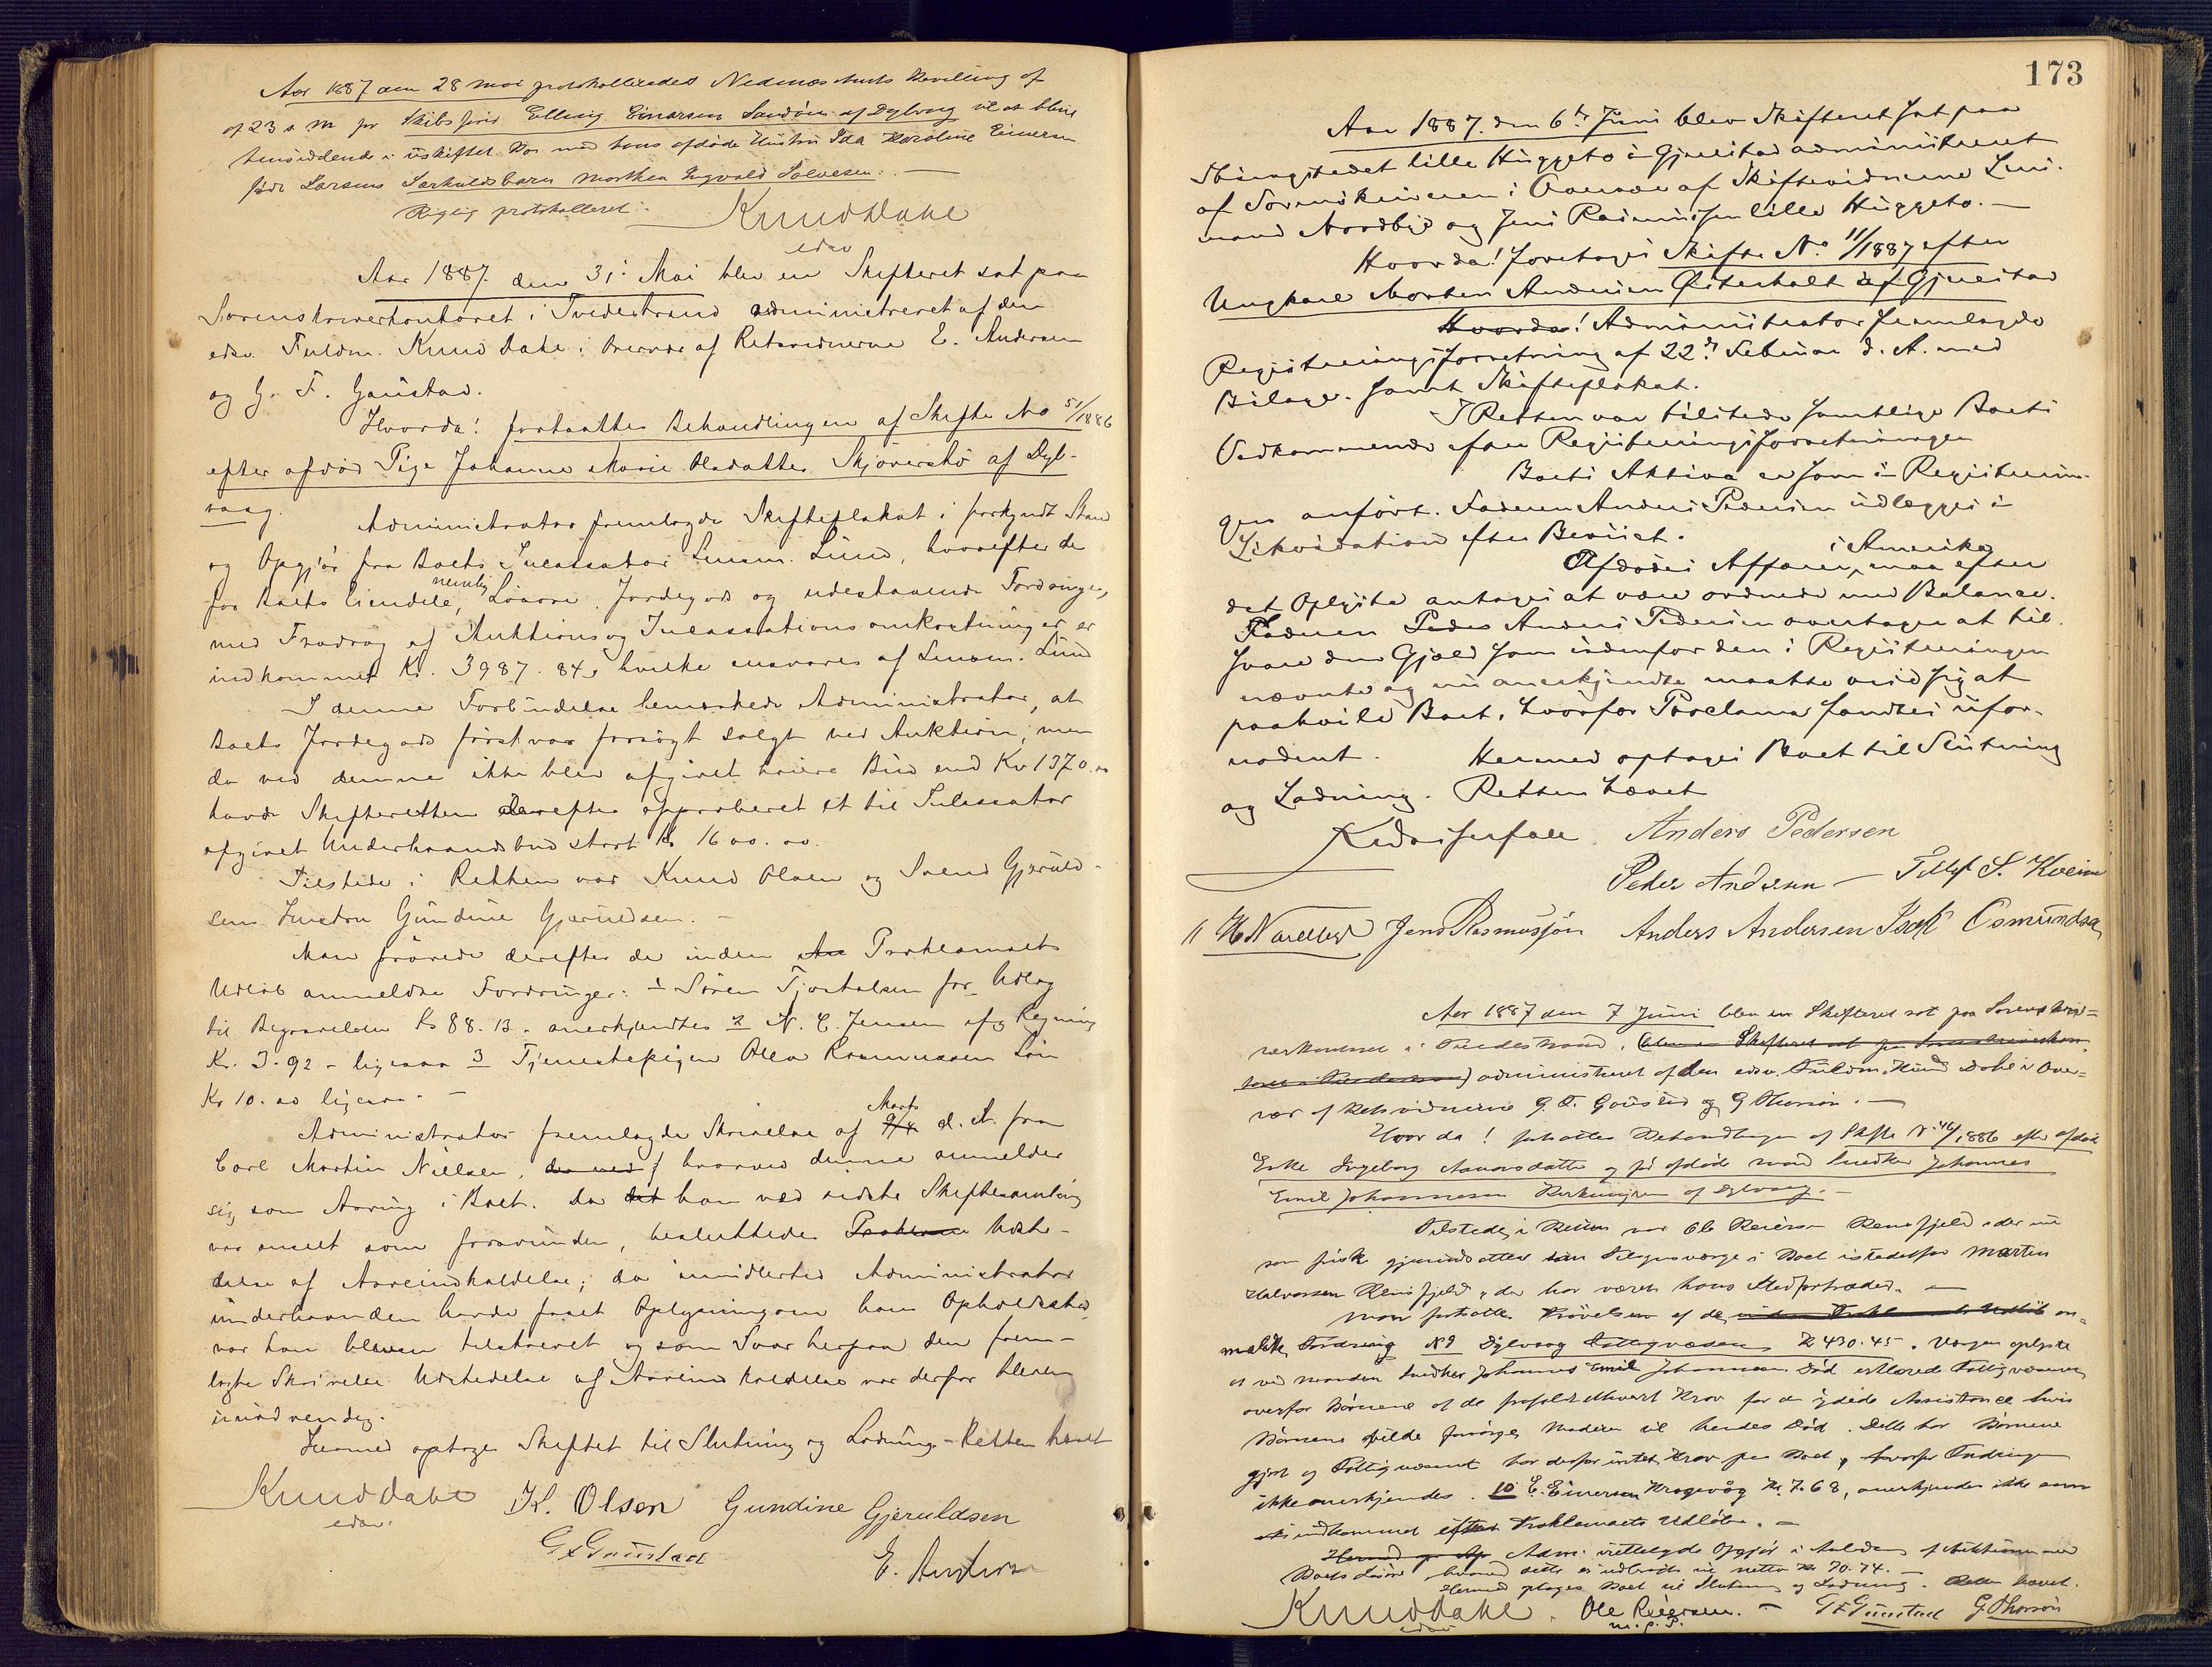 Aar 1887 den 28 Mai protokolleredes Nedenæs Amts Bevilling af
af 23 s. M. for Skibsfører Elling Einarsen Sandøen af Dybvaag til at blive
hensiddende i uskiftet Bo med hans afdøde Hustru Ida Karoline Einersen
født Larsens Særkuldsbarn Marthea Ingvald Solvesen. —
Rigtig protokolleret:
Knud Dahl
edsv
Aar 1887 den 31. Mai blev en Skifteret sat paa
Sorenskriverkontoret i Tvedestrand administreret af den
edsv. Fuldm. Knud Dahl i Overvær af Retsvidnerne E. Andersen
og G. F. Gaustad.
Hvorda! fortsattes Behandlingen af Skifte No 51/1886
efter afdød Pige Johanne Marie Olsdatter Skjørersbø af Dyb-
vaag.
Administrator fremlagde Skifteplakat i forkyndt Stand
og Opgjør fra Boets Incassator Lensm. Lund, hvorefter der
for Boets Eiendele, nemlig Løsøre, Jordegods og udestaaende Fordringer,
med Fradrag af Auktions og Incassationsomkostninger er
indkommet Kr. 3987.84, hvilke ansvares af Lensm. Lund
I denne Forbindelse bemærkede Administrator, at
Boets Jordegods først var forsøgt solgt ved Auktion, men
da ved denne ikke blev afgivet høiere Bud end Kr 1370.00
havde Skifteretten derefter approberet et til Incassator
afgivet Underhaandsbud stort Kr 1600.00.
Tilstede i Retten var Knud Olsen og Svend Gjeruld-
sens Hustru Gundine Gjeruldsen. —
Man prøvede derefter de inden Proklamaets
Udløb anmeldte Fordringer: 1 Søren Tjostolsen for Udlæg
til Begravelsen Kr 88.13. anerkjendtes 2 N. C. Jensen ifg Regning
Kr. 3.92 – ligesaa 3 Tjenestepigen Olea Rasmussen Løn
Kr 10.00 ligesaa. —
Administrator fremlagde Skrivelse af 9/4 Marts d. A. fra
Carl Martin Nielsen, der ved hvorved denne anmelder
sig som Arving i Boet. Da det han ved sidste Skiftesamling
var anseet som forsvunden, besluttedes Proklama Udste-
delse af Arveindkaldelse; da imidlertid Administrator
underhaanden havde faaet Oplysning om hans Opholdssted
var han bleven tilskrevet og som Svar herpaa den frem-
lagte Skrivelse. Udstedelse af Arveindkaldelse var derfor bleven
unødvendig.
Hermed optoges Skiftet til Slutning og Lodning – Retten hævet
Knud Dahl
edsv.
K. Olsen Gundine Gjeruldsen
G F Gaustad
E. Andersen
173
Aar 1887. den 6te Juni blev Skifteret sat paa
Thingstedet lille Huggeto i Gjerstad administreret
af Sorenskriveren i Overvær af Skiftevidnerne Lens-
mand Nordbø og Jens Rasmussen lille Huggeto. —
Hvorda! foretoges Skifte No 11/1887 efter
Ungkarl Morten Andersen Østerholt af Gjerstad
Hvorda! Administrator fremlagde
Registreringsforretning af 22de Februar d. A. med
Bilage. samt Skifteplakat.
I Retten var tilstede samtlige Boets
Vedkommende efter Registreringsforretningen
Boets Aktiva er som i Registrerin-
gen anført. Faderen Anders Pedersen udlægges i
Likvidation efter Beviset.
Afdødes Affærer i Amerika, maa efter
det Oplyste antages at være ordnede med Balance.
Faderen Peder Anders Pedersen overtager at til-
svare den Gjæld som udenfor den i Registreringen
nævnte og nu anerkjendte maatte vise sig at
paahvile Boet, hvorfor Proclama fandtes ufor-
nødent.
Hermed optoges Boet til Slutning
og Lodning. Retten hævet
Anders Pedersen
Peder Andersen — Tellef S. Kveim
Jens Rasmussøn Anders Andersen Isak Osmundsen
Aar 1887 den 7 Juni blev en Skifteret sat paa Sorenskri-
verkontoret i Tvedestrand, (blev en Skifteret sat paa Sorenskriverkon-
toret i Tvedestrand) administreret af den edsv. Fuldm. Knud Dahl i Over-
vær af Retsvidnerne G. F. Gaustad og G Thorsøn. —
Hvor da! fortsattes Behandlingen af Skifte N. 46/1886 efter afdøde
Enke Ingeborg Aanonsdatter og før afdøde Mand Snedker Johannes
Emil Johannesen af Dybvaag. —
Tilstede i Retten var Ole Reiersen Rensfjeld der nu
Halvorsen Rensfjeld, der har været hans Stedfortræder. —
Man fortsatte Prøvelsen af de inden Proklamaets Udløb an-
meldte Fordring N 9 Dybvaag Fattigvæsen Kr 430.45. Værgen oplyste
at ved Manden Snedker Johannes Emil Johannesens Død erklærede Fattigvæsenet
overfor Børnene at de frafaldt ethvert Krav for den ydede Assistance hvis
Børnene vilde forsørge Moderen til hendes Død. Dette har Børnene
gjort og Fattigvæsenet har derfor intet Krav paa Boet, hvorfor Fordringen
ikke anerkjendes. 10 E. Einersen Kragevåg Kr. 7.68, anerkjendes ikke som
indkommet efter Proklamaets Udløb. —
Hermed Adm: irettelagde Opgjør i Anledn. af Auktionen over
Boets Løsøre, hvorved dette er udbragt til netto Kr 70.74. —
Hermed optoges Boet til Slutning og Lodning. Retten hævet.
Knud Dahl
edsv
Ole Reiersen. — G F Gaustad G Thorsøn
m. p. P.